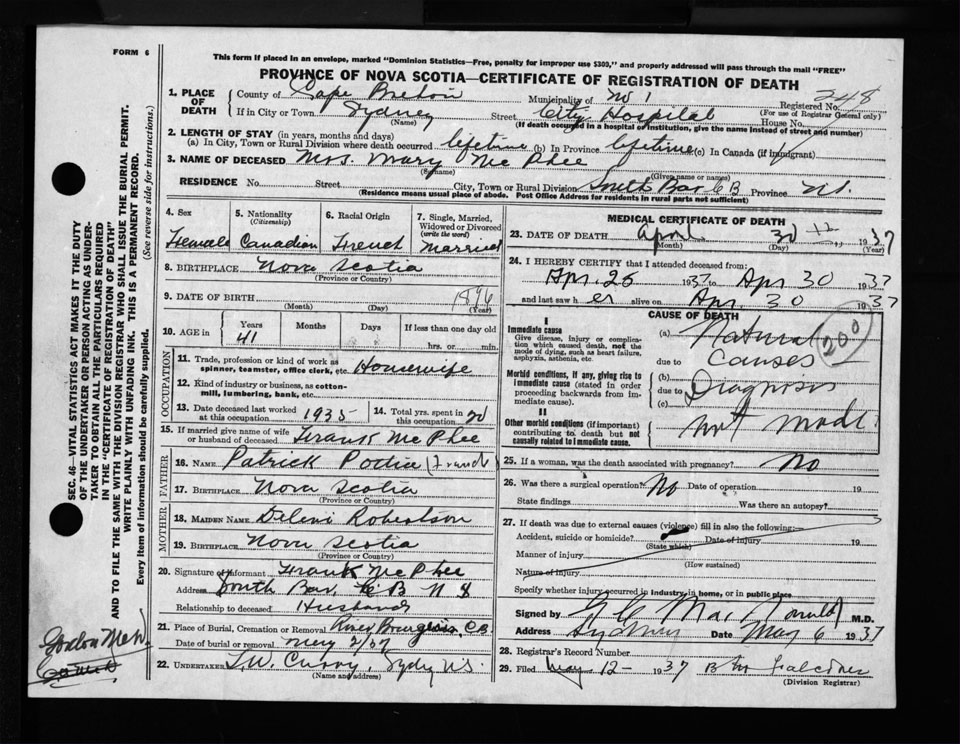 FORM 6
This form if placed in an envelope, marked "Dominion Statistics—Free, penalty for improper use $300," and properly addressed will pass through the mail "FREE"
PROVINCE OF NOVA SCOTIA—CERTIFICATE OF REGISTRATION OF DEATH
1. PLACE OF DEATH County of Cape Breton Municipality of No 1 Registered No. 248
If in City or Town Sydney (Name) Street City Hospital House No. (For use of Registrar General only)
(If death occurred in a hospital or institution, give the name instead of street and number)
2. LENGTH OF STAY (in years, months and days)
(a) In City, Town or Rural Division where death occurred lifetime (b) In Province lifetime (c) In Canada (if immigrant)
3. NAME OF DECEASED Mrs. Mary McPhee
(Surname) (Given name or names)
RESIDENCE No. Street City, Town or Rural Division South Bar C B Province N.S.
(Residence means usual place of abode. Post Office Address for residents in rural parts not sufficient)
4. Sex Female
5. Nationality (Citizenship) Canadian
6. Racial Origin French
7. Single, Married, Widowed or Divorced (write the word) Married
8. BIRTHPLACE Nova Scotia
(Province or Country)
9. DATE OF BIRTH 1896
(Month) (Day) (Year)
10. AGE in Years 41 Months Days If less than one day old
hrs. or min.
OCCUPATION
11. Trade, profession or kind of work as spinner, teamster, office clerk, etc. Housewife
12. Kind of industry or business, as cotton-mill, lumbering, bank, etc.
13. Date deceased last worked at this occupation 1935
14. Total yrs. spent in this occupation 20
15. If married give name of wife or husband of deceased Frank McPhee
FATHER
16. NAME Patrick
17. BIRTHPLACE Nova Scotia
(Province or Country)
MOTHER
18. MAIDEN NAME Robertson
19. BIRTHPLACE Nova Scotia
(Province or Country)
20. Signature of informant Frank McPhee
Address South Bar, C B N S
Relationship to deceased Husband
21. Place of Burial, Cremation or Removal River Bourgeois, C.B
Date of burial or removal May 2/37
22. UNDERTAKER Curry, Sydney N.S.
(Name and address)
MEDICAL CERTIFICATE OF DEATH
23. DATE OF DEATH April 30 1937
(Month) (Day) (Year)
24. I HEREBY CERTIFY that I attended deceased from:
Apr. 25 1937 to Apr 30 1937
and last saw her alive on Apr. 30 1937
CAUSE OF DEATH
I
Immediate cause
Give disease, injury or complication which caused death, not the mode of dying, such as heart failure, asphyxia, asthenia, etc.
(a) Natural Causes 200
due to
Morbid conditions, if any, giving rise to immediate cause (stated in order proceeding backwards from immediate cause).
(b) Diagnosis
due to
(c) not made
II
Other morbid conditions (if important) contributing to death but not causally related to immediate cause.
25. If a woman, was the death associated with pregnancy? No
26. Was there a surgical operation? No Date of operation 19
State findings Was there an autopsy?
27. If death was due to external causes (violence) fill in also the following:
Accident, suicide or homicide? Date of injury 19
(State which)
Manner of injury
(How sustained)
Nature of injury
Specify whether injury occurred in industry, in home, or in public place
Signed by MacDonald M.D.
Address Sydney Date May 6 1937
28. Registrar's Record Number
29. Filed May 12 - 1937 Falconer
(Division Registrar)
SEC. 46—VITAL STATISTICS ACT MAKES IT THE DUTY
OF THE UNDERTAKER OR PERSON ACTING AS UNDER-
TAKER TO OBTAIN ALL THE PARTICULARS REQUIRED
IN THE "CERTIFICATE OF REGISTRATION OF DEATH"
AND TO FILE THE SAME WITH THE DIVISION REGISTRAR WHO SHALL ISSUE THE BURIAL PERMIT.
WRITE PLAINLY WITH UNFADING INK. THIS IS A PERMANENT RECORD.
Every item of information should be carefully supplied. (See reverse side for instructions.)
Gordon